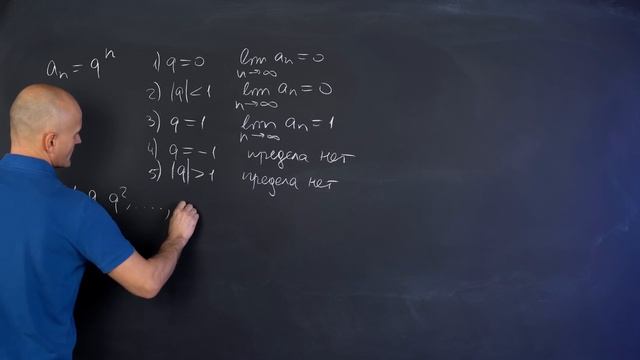 aₙ = qⁿ
1) q = 0 lim aₙ = 0
n→∞
2) |q| < 1 lim aₙ = 0
n→∞
3) q = 1 lim aₙ = 1
n→∞
4) q = -1 предела нет
5) |q| > 1 предела нет
q, q², ....,